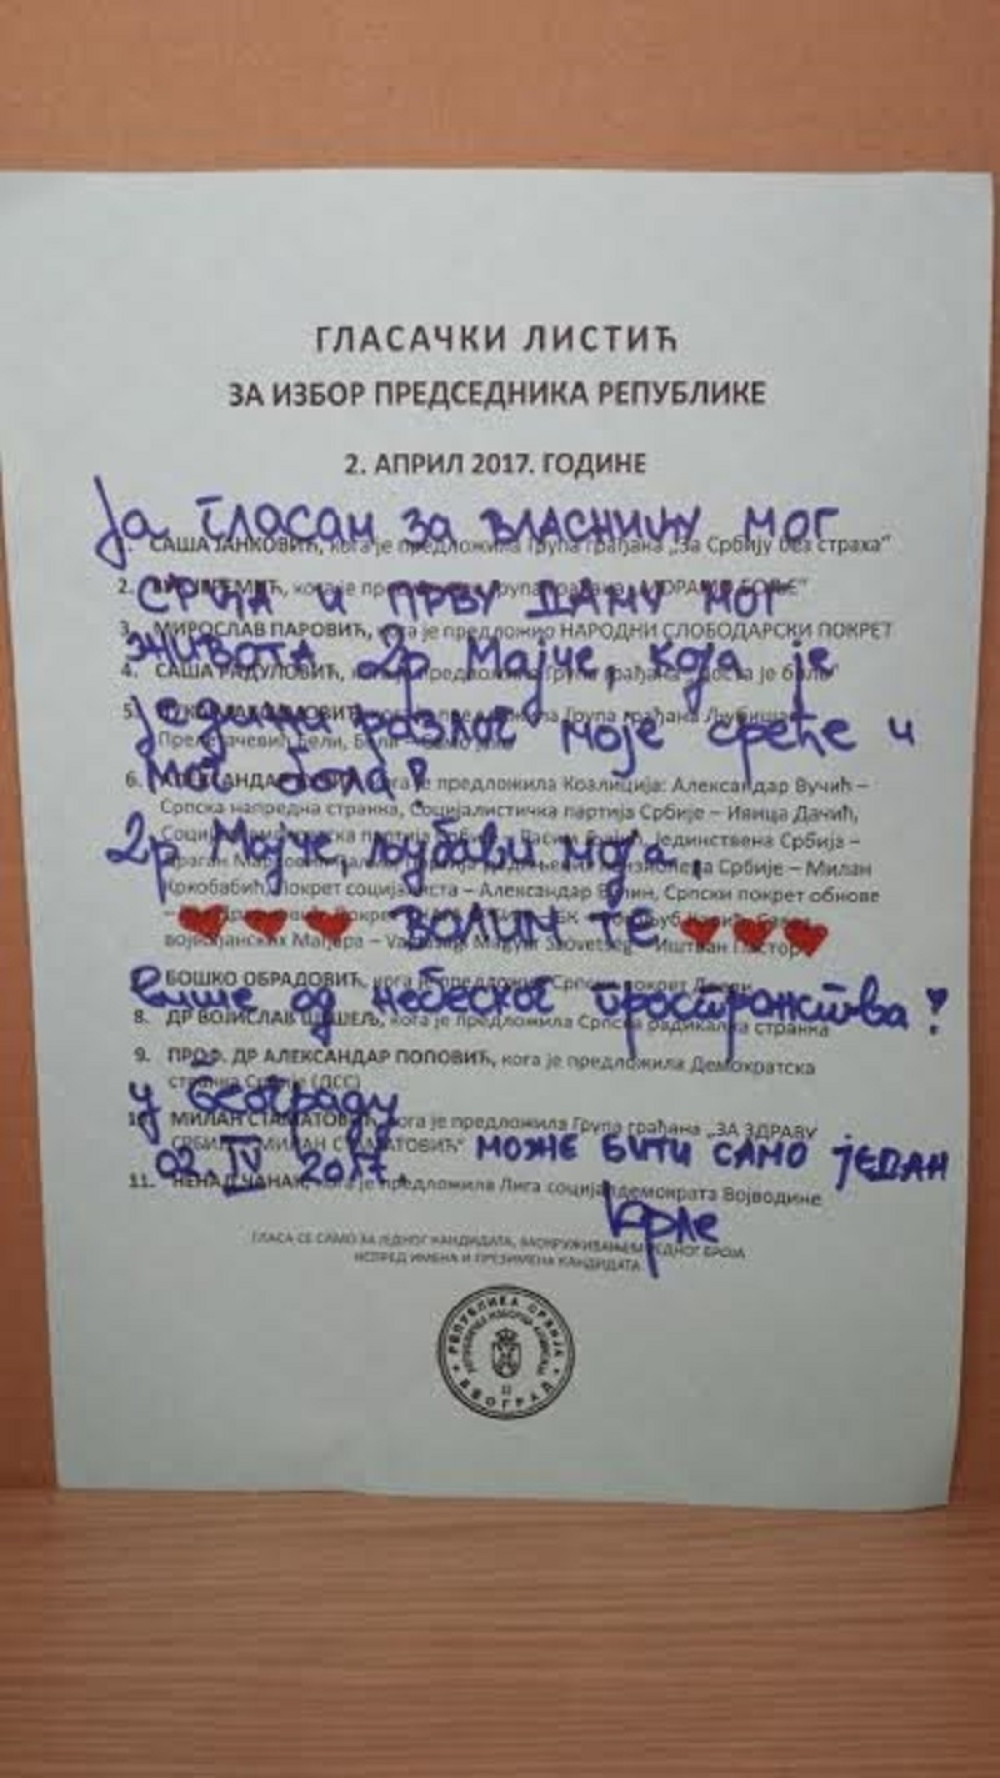 ГЛАСАЧКИ ЛИСТИЋ
ЗА ИЗБОР ПРЕДСЕДНИКА РЕПУБЛИКЕ
2. АПРИЛ 2017. ГОДИНЕ
Ја гласам за власницу мог
1. САША ЈАНКОВИЋ, кога је предложила Група грађана „За Србију без страха“
2. ВУК ЈЕРЕМИЋ, кога је
срца и прву даму мог
3. МИРОСЛАВ ПАРОВИЋ, кога је предложио НАРОДНИ СЛОБОДАРСКИ ПОКРЕТ
живота др Мајче, која је
4. САША РАДУЛОВИЋ,
једини разлог моје среће и
5. Група грађана
Бели
мог бола!
6. АЛЕКСАНДАР кога је предложила Коалиција: Александар Вучић –
Српска напредна странка, Социјалистичка партија Србије – Ивица Дачић,
Јединствена Србија –
др Мајче, љубави моја,
Србије – Милан
Кркобабић, Покрет социјалиста – Александар Вулин, Српски покрет обнове
ВОЛИМ ТЕ
војвођанских Мађара – Vajdasági Magyar Szövetség – Иштван Пастор
БОШКО ОБРАДОВИЋ, кога је предложио Српски покрет Двери
више од небеског пространства!
8. ДР ВОЈИСЛАВ ШЕШЕЉ, кога је предложила Српска радикална странка
9. ПРОФ. ДР АЛЕКСАНДАР ПОПОВИЋ, кога је предложила Демократска
странка Србије (ДСС)
у Београду
МИЛАН СТАМАТОВИЋ, кога је предложила Група грађана „ЗА ЗДРАВУ
СРБИЈУ – МИЛАН СТАМАТОВИЋ“
02. IV 2017. може бити само један
11. НЕНАД ЧАНАК, кога је предложила Лига социјалдемократа Војводине
Крле
ГЛАСА СЕ САМО ЗА ЈЕДНОГ КАНДИДАТА, ЗАОКРУЖИВАЊЕМ ЈЕДНОГ БРОЈА
ИСПРЕД ИМЕНА И ПРЕЗИМЕНА КАНДИДАТА
РЕПУБЛИКА СРБИЈА
РЕПУБЛИЧКА ИЗБОРНА КОМИСИЈА
БЕОГРАД